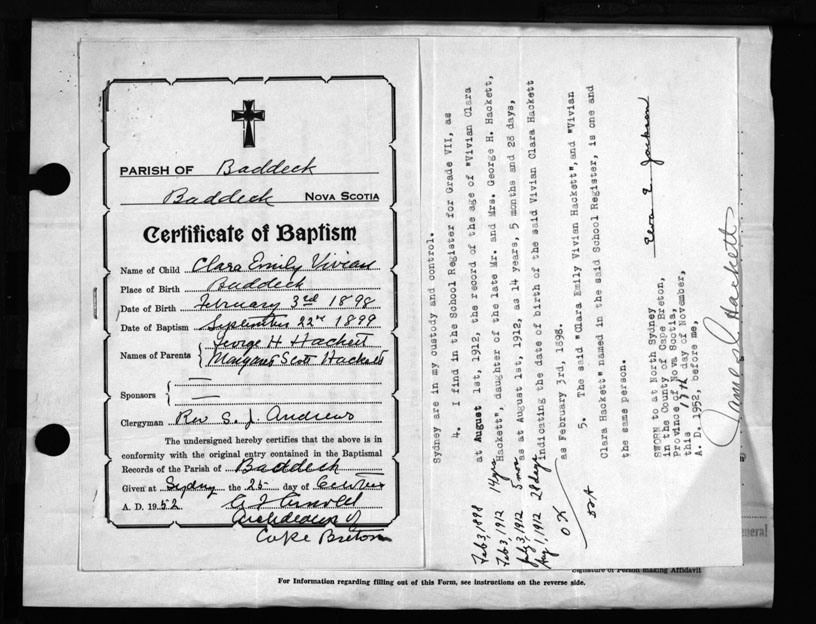 PARISH OF Baddeck
Baddeck NOVA SCOTIA
Certificate of Baptism
Name of Child Clara Emily Vivian
Place of Birth Baddeck
Date of Birth February 3rd 1898
Date of Baptism September 23rd 1899
Names of Parents { George H Hackett
Margaret Scott Hackett
Sponsors {
Clergyman Rev S. J. Andrews
The undersigned hereby certifies that the above is in
conformity with the original entry contained in the Baptismal
Records of the Parish of Baddeck
Given at Sydney the 25 day of
A. D. 1952
Archdeacon of
Cape Breton
Sydney are in my custody and control.
4. I find in the School Register for Grade VII, as
at August 1st, 1912, the record of the age of "Vivian Clara
Hackett", daughter of the late Mr. and Mrs. George H. Hackett,
as at August 1st, 1912, as 14 years, 5 months and 28 days,
indicating the date of birth of the said Vivian Clara Hackett
as February 3rd, 1898.
5. The said "Clara Emily Vivian Hackett", and "Vivian
Clara Hackett" named in the said School Register, is one and
the same person.
SWORN to at North Sydney
in the County of Cape Breton,
Province of Nova Scotia,
this 17th day of November,
A. D. 1952, before me,
Elva E. Jackson
James C Hackett
Feb 3, 1898
Feb 3, 1912 14 yrs
July 3, 1912 5 mos
Aug 1, 1912 28 days
OK
eneral
Signature of Person making Affidavit
For Information regarding filling out of this Form, see instructions on the reverse side.